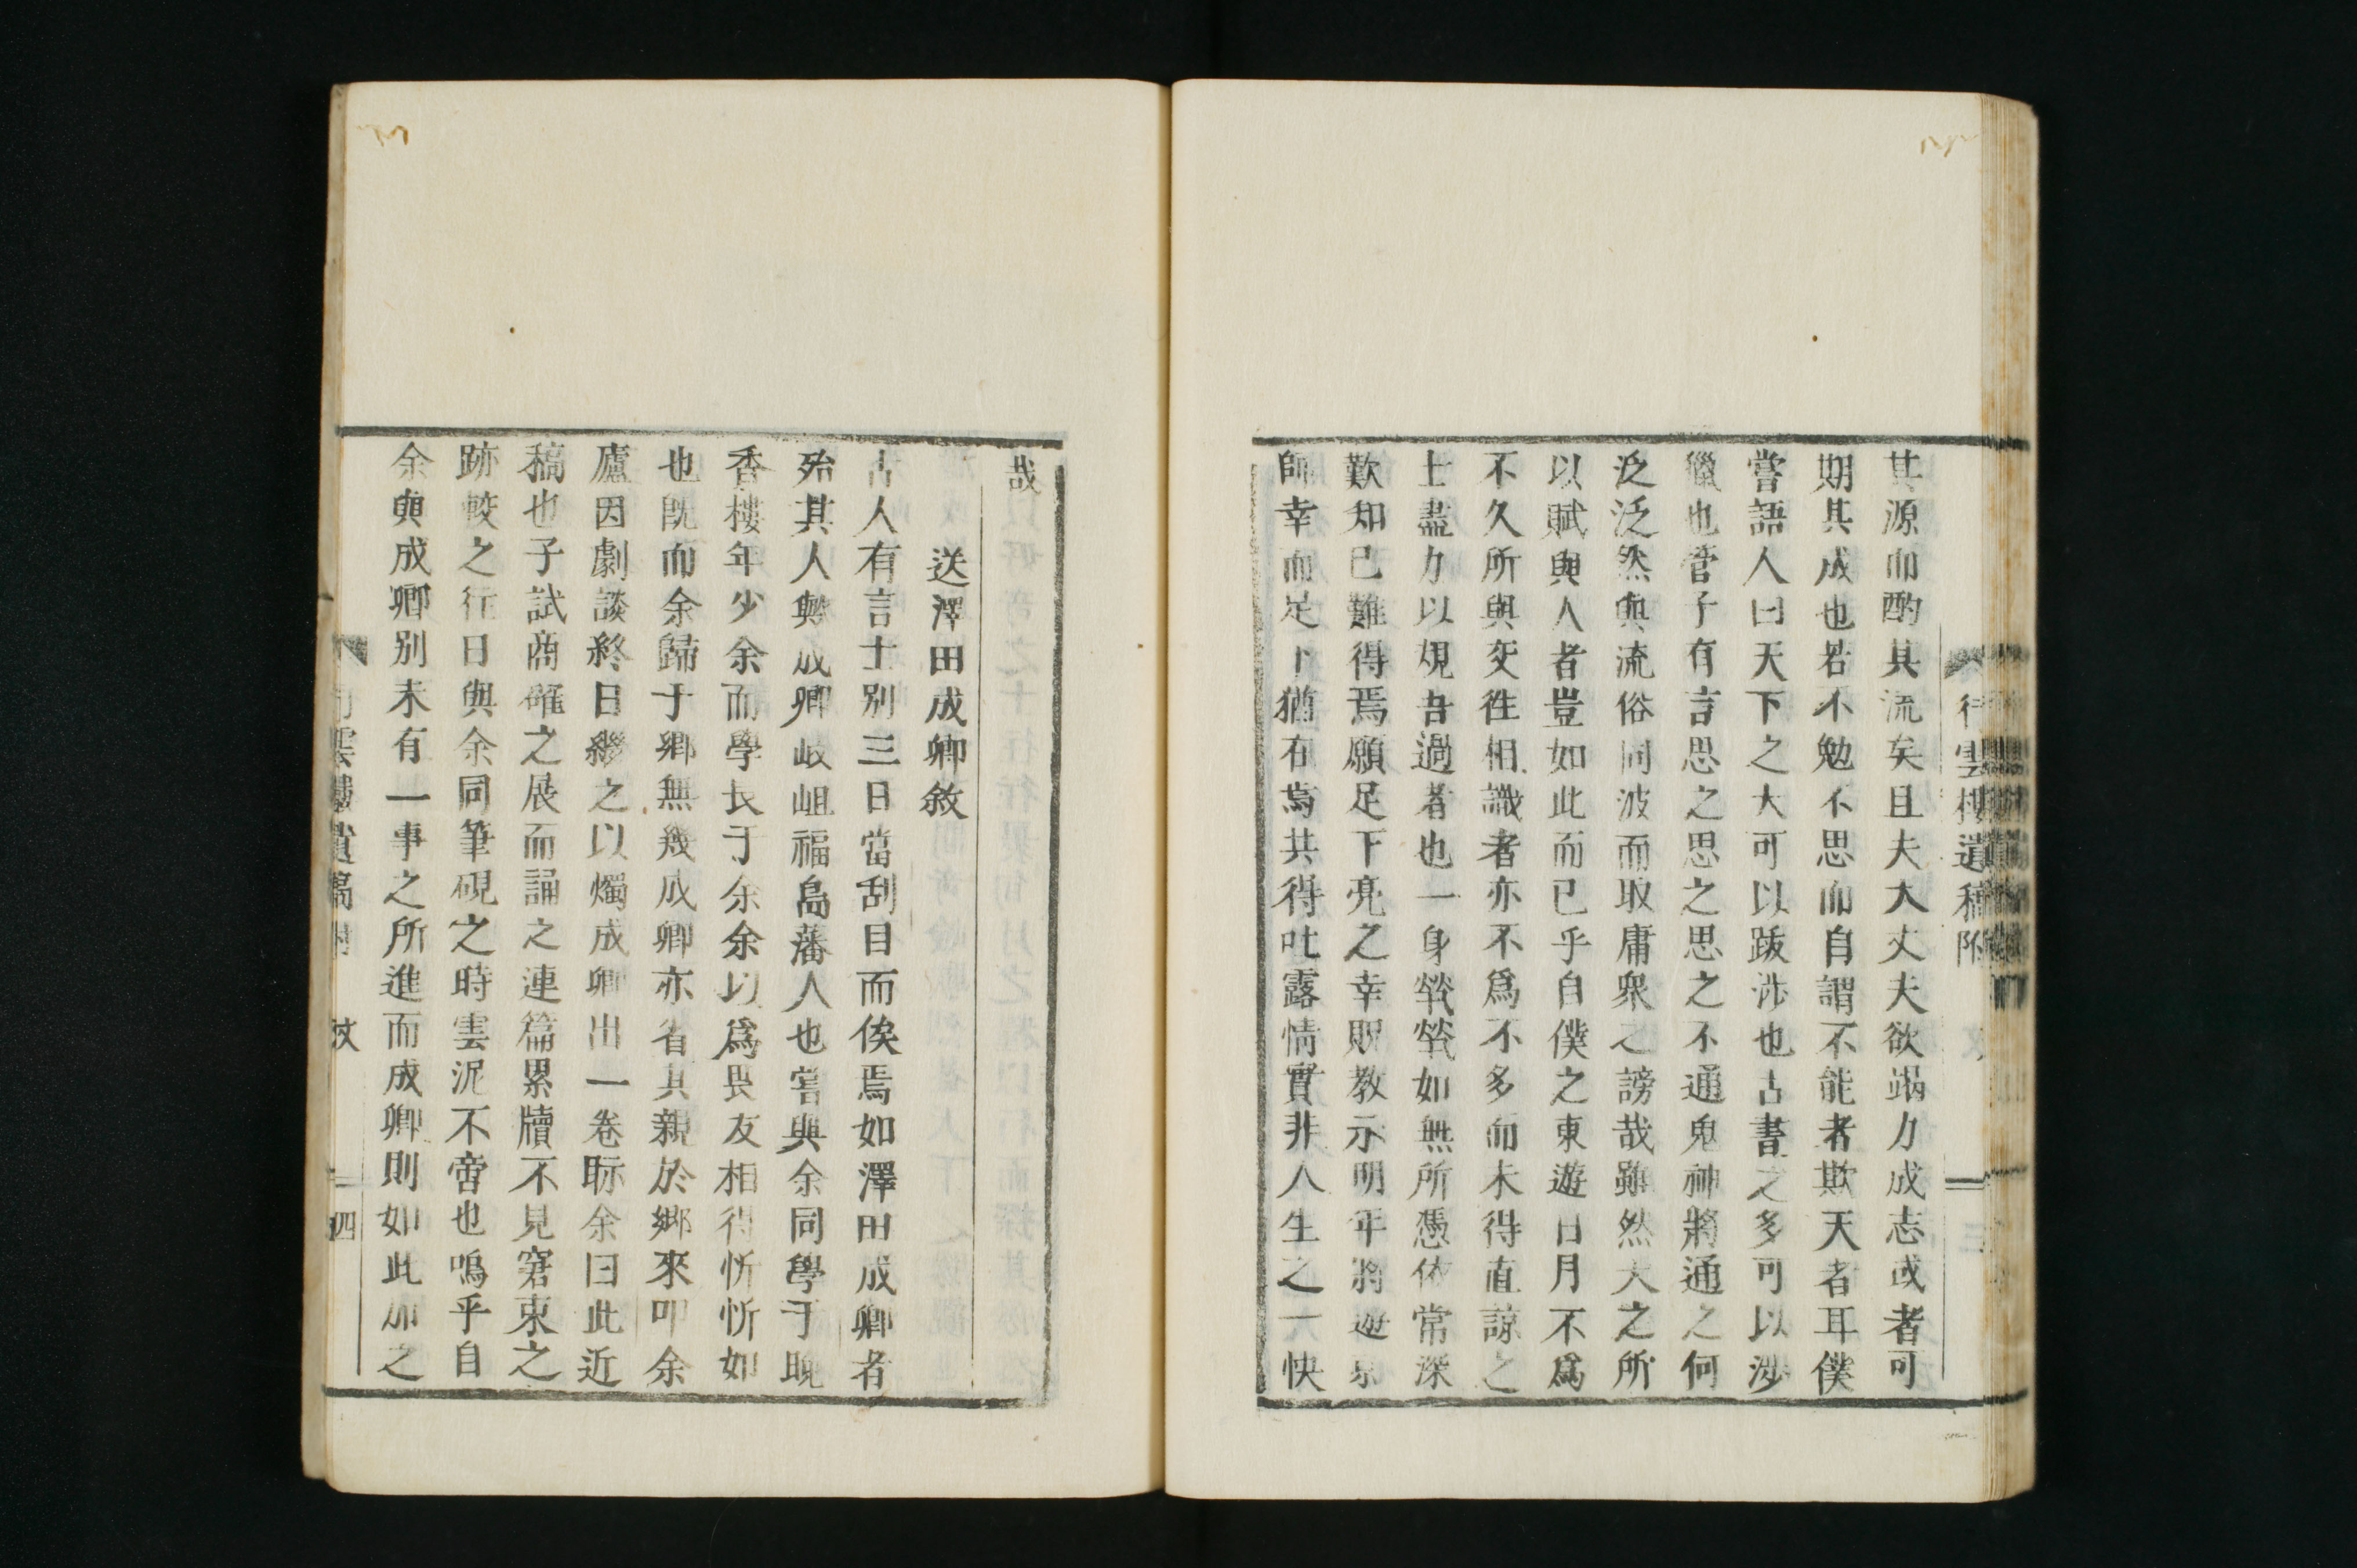 行雲樓遺稿附
其源而酌其流矣且夫大丈夫欲竭力成志或者可
期其成也若不勉不思而自謂不能者欺天者耳僕
嘗語人曰天下之大可以跋涉也古書之多可以涉
獵也管子有言思之思之思之不通鬼神將通之何
泛泛然與流俗同波而取庸衆之謗哉雖然大之所
以賦與人者豈如此而已乎自僕之東遊日月不爲
不久所與交徃相識者亦不爲不多而未得直諒之
士盡力以規吾過者也一身煢煢如無所憑依常深
歎知己難得焉願足下亮之幸貺教示明年將遊京
師幸而足下猶在焉共得吐露情實非人生之一快
哉
送澤田成卿敘
古人有言士別三日當刮目而俟焉如澤田成卿者
殆其人歟成卿岐岨福島藩人也嘗與余同學于晚
香樓年少余而學長于余余以爲畏友相得忻忻如
也既而余歸于鄉無幾成卿亦省其親於鄉來叩余
廬因劇談終日繼之以燭成卿出一卷眎余曰此近
稿也子試商確之展而誦之連篇累牘不見窘束之
跡較之行日與余同筆硯之時雲泥不啻也嗚乎自
余與成卿別未有一事之所進而成卿則如此加之
雲樓遺稿附 文 四